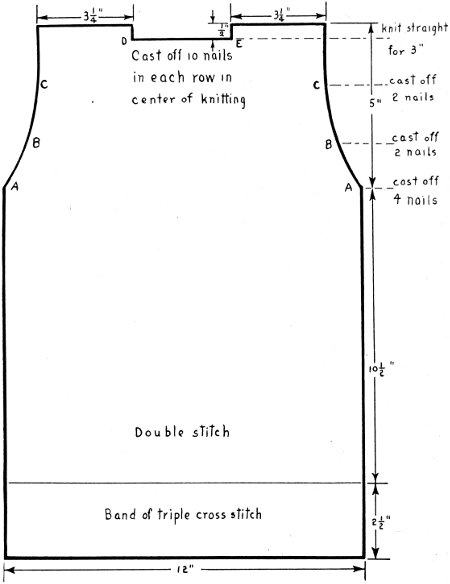 3 1/4"
3 1/4"
1/2"
knit straight
for 3"
D
E
Cast off 10 nails
in each row in
center of knitting
C
C
cast off
2 nails
5"
B
B
cast off
2 nails
A
A
cast off
4 nails
10 1/2"
Double stitch
Band of triple cross stitch
2 1/2"
12"